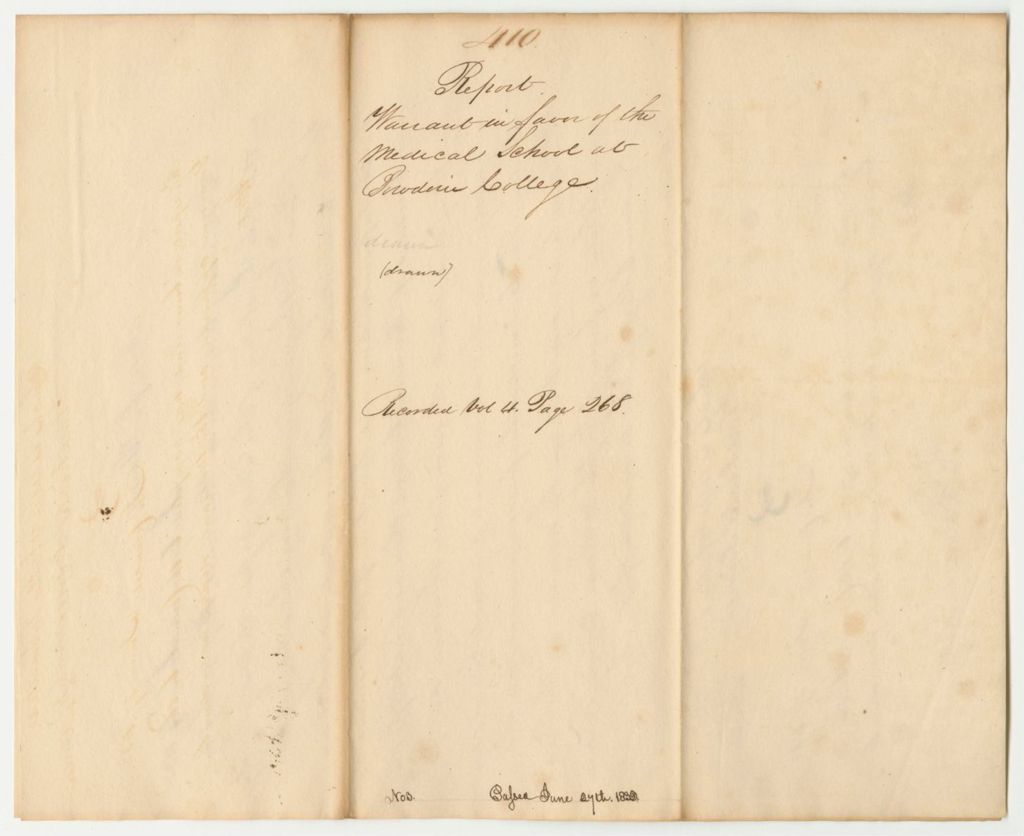 410
Report
Warrant in favor of the
Medical School at
Bowdoin College.
drawn
(drawn)
Recorded Vol 4. Page 268.
Passed June 27th.